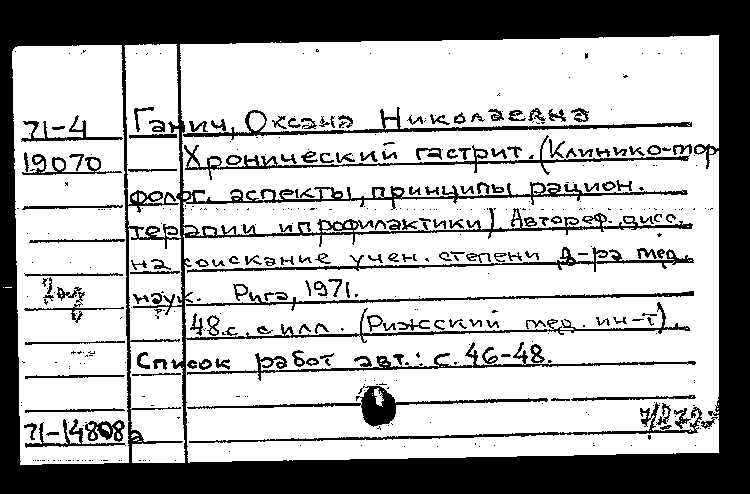 71-4 Ганич, Оксана Николаевна
19070 Хронический гастрит. (Клинико-мор
фолог. аспекты, принципы рацион.
терапии и профилактики) Автореф. дисс.
на соискание учен. степени д-ра мед.
наук. Рига, 1971.
48 с. с илл. (Рижсский мед. ин-т).
Список работ авт.: с. 46-48.
71-14808а